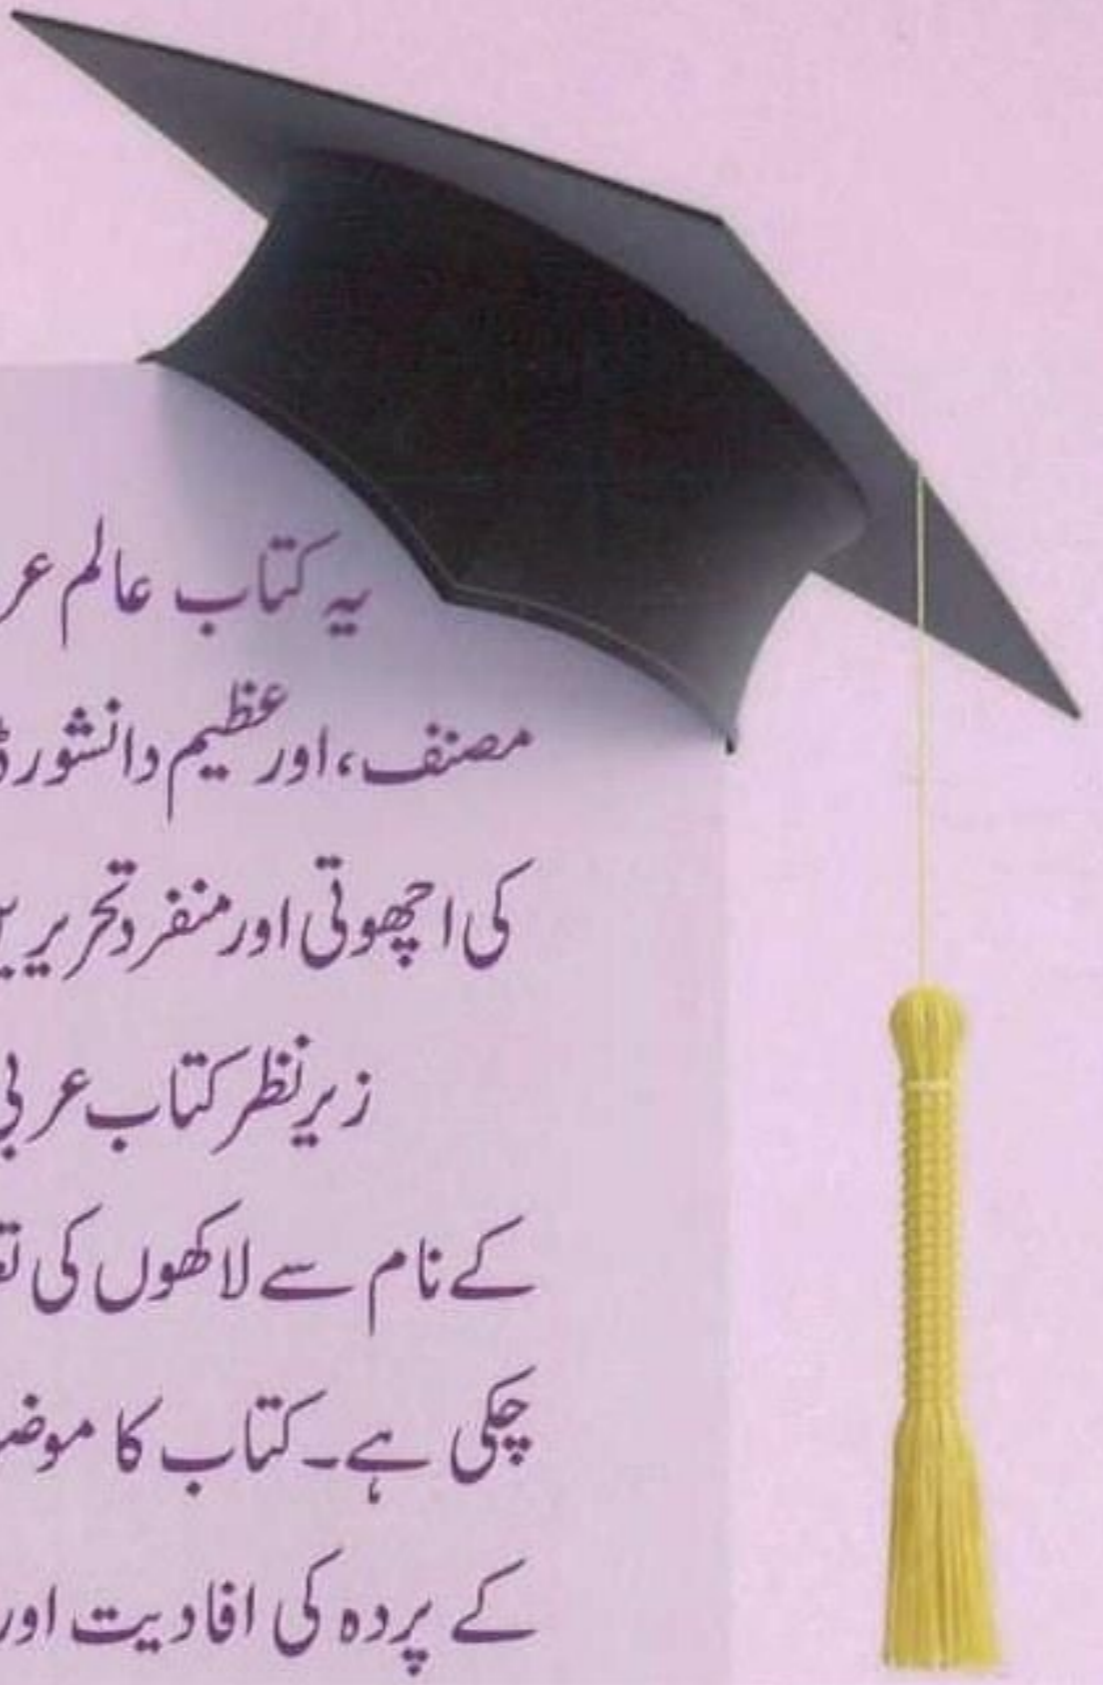 یہ کتاب عالم
مصنف، اور عظیم دانشور
کی اچھوتی اور منفرد تحریر
زیر نظر کتاب عربی
کے نام سے لاکھوں کی
چکی ہے۔ کتاب کا
کے پردہ کی افادیت اور